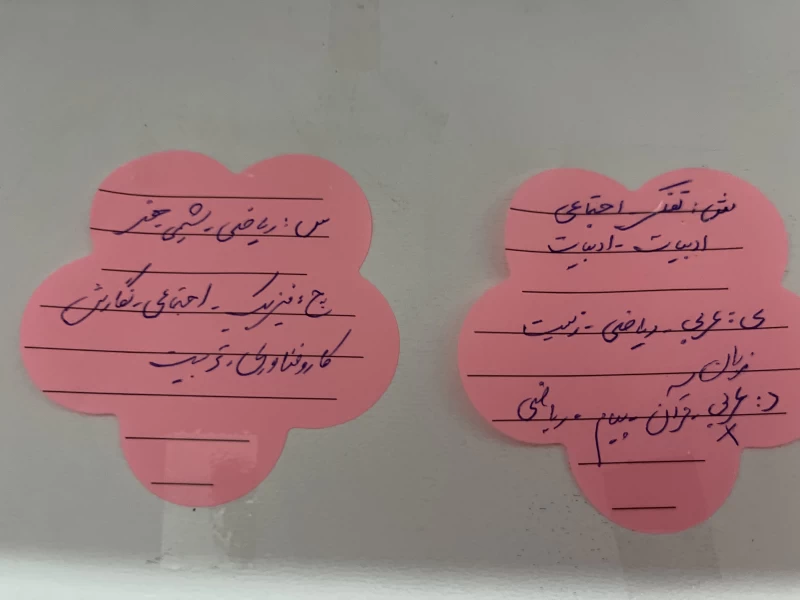 ش: تفکر اجتماعی
ادبیات - ادبیات
ی: عربی - ریاضی - زیست
زبان
د: عربی - قرآن - پیام - ریاضی
x
س: ریاضی - شیمی -
پ/چ: فیزیک - اجتماعی - نگارش
کاروفناوری - تربیت